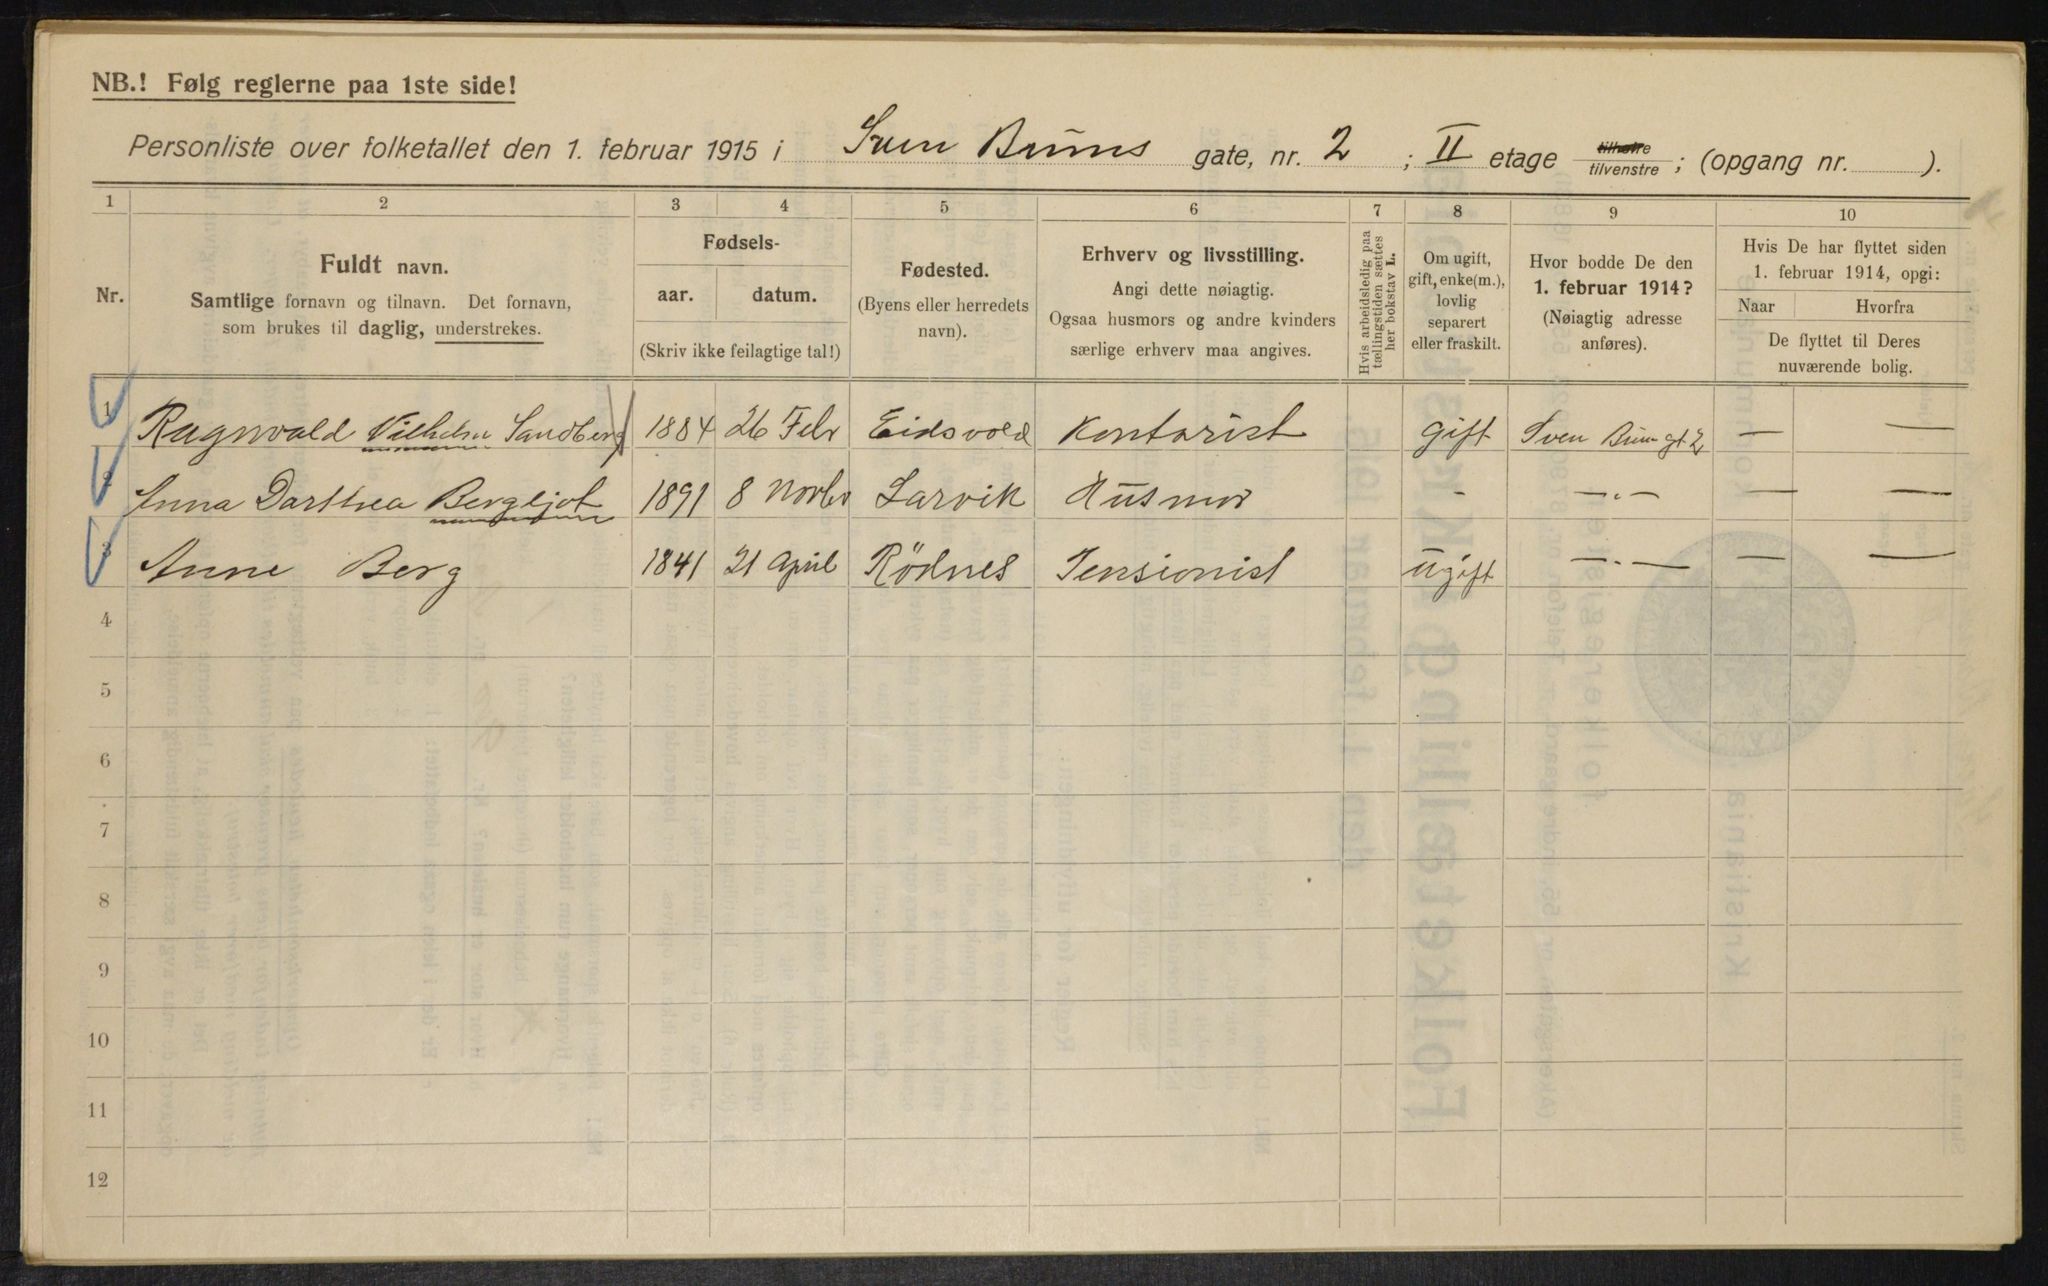 NB.! Følg reglerne paa 1ste side!
Personliste over folketallet den 1. februar 1915 i Sven Bruns gate, nr. 2 ; II etage tilhøire / tilvenstre ; (opgang nr. ).
1 2 3 4 5 6 7 8 9 10
Nr.
Fuldt navn.
Samtlige fornavn og tilnavn. Det fornavn,
som brukes til daglig, understrekes.
Fødsels-
aar. datum.
(Skriv ikke feilagtige tal!)
Fødested.
(Byens eller herredets
navn).
Erhverv og livsstilling.
Angi dette nøiagtig.
Ogsaa husmors og andre kvinders
særlige erhverv maa angives.
Hvis arbeidsledig paa
tællingstiden sættes
her bokstav L.
Om ugift,
gift, enke(m.),
lovlig
separert
eller fraskilt.
Hvor bodde De den
1. februar 1914?
(Nøiagtig adresse
anføres).
Hvis De har flyttet siden
1. februar 1914, opgi:
Naar Hvorfra
De flyttet til Deres
nuværende bolig.
1 Ragnvald Vilhelm Sandberg 1884 26 Febr Eidsvold Kontorist gift Sven Brun gt 2 — —
2 Anna Dorthea Bergljot 1891 8 Novbr Larvik Husmor - —„— — —
3 Anne Berg 1841 21 April Rödnes Pensionist ugift —„— — —
4
5
6
7
8
9
10
11
12